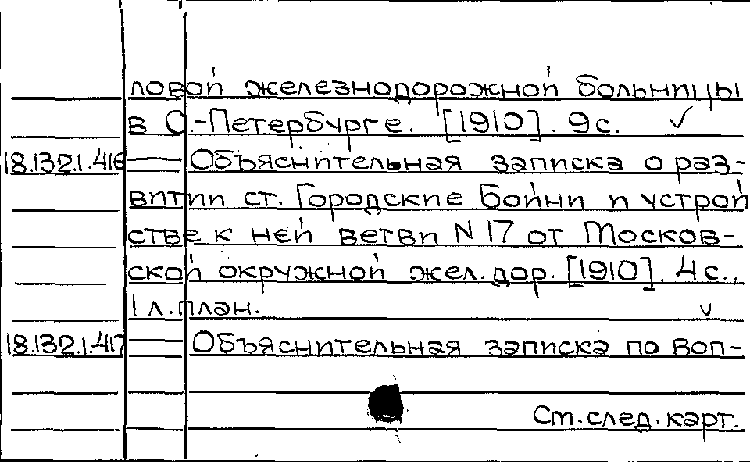 ловой железнодорожной больницы
в С.-Петербурге. [1910]. 9с. ✓
18.132.1.416 — Объяснительная записка о раз-
витии ст. Городские Бойни и устрой
стве к ней ветви N 17 от Москов-
ской окружной жел. дор. [1910]. 4с.,
1 л. план. ✓
18.132.1.417 — Объяснительная записка по воп-
См. след. карт.